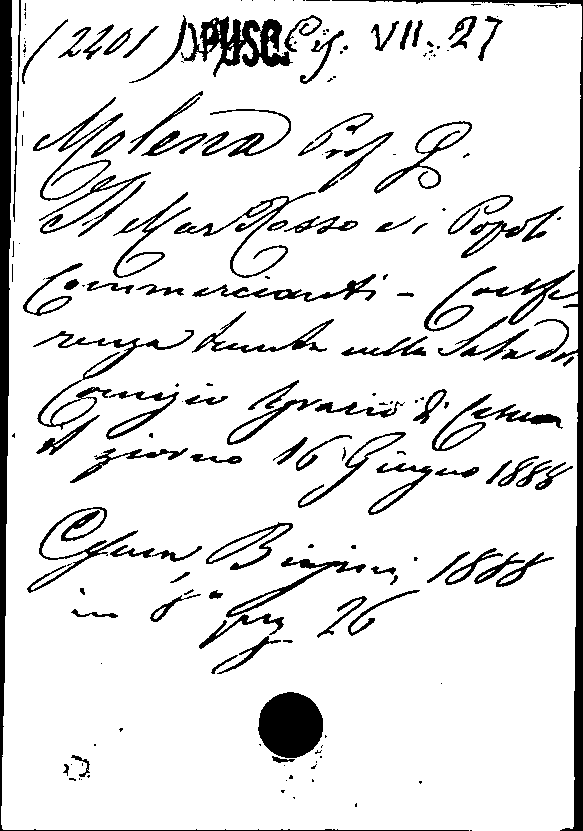 (2201) OPUSC. Ces. VII. 27
Molena Prof. G.
Il Mar Rosso e i Popoli
Commercianti - Confe-
renza tenuta nella Sala del
Comizio Agrario di Cesena
il giorno 16 Giugno 1888
Cesena, Biasini, 1888
in 8° pag 26